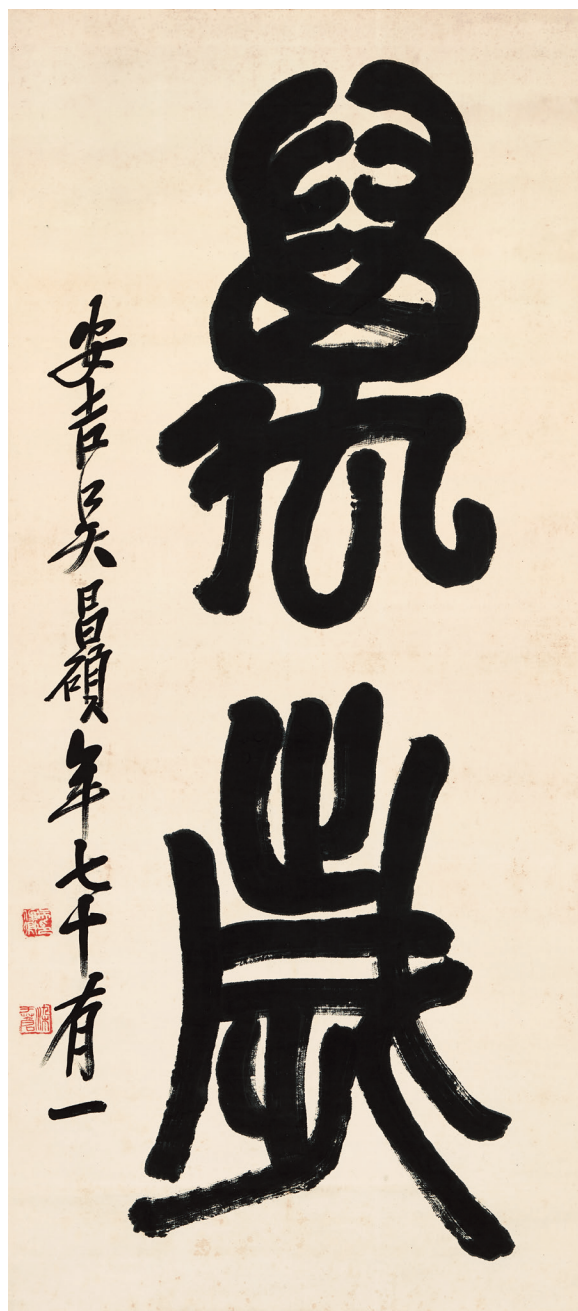 萬歲
安吉吳昌碩年七十有一